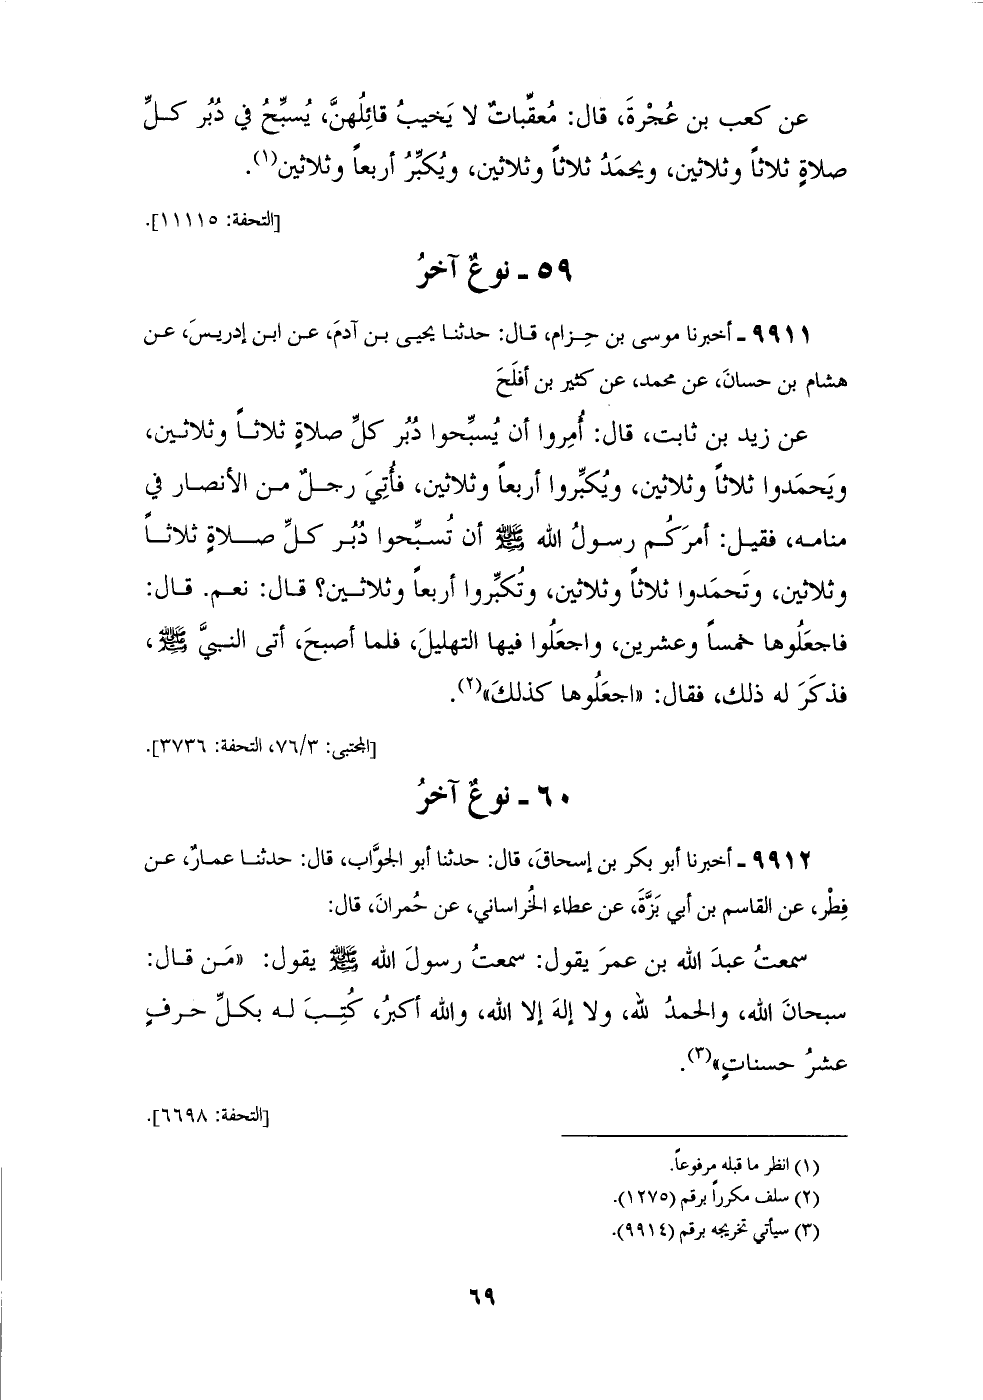 عن كعب بن عُجْرةَ، قال: مُعقِّباتٌ لا يَخيبُ قائِلُهنَّ، يُسبِّحُ في دُبُر كلِّ
صلاةٍ ثلاثاً وثلاثين، ويحمَدُ ثلاثاً وثلاثين، ويُكبِّرُ أربعاً وثلاثين(١).
[التحفة: ١١١١٥].
٥٩ - نوعٌ آخرُ
٩٩١١ - أخبرنا موسى بن حِزام، قال: حدثنا يحيى بن آدمَ، عن ابن إدريسَ، عن
هشام بن حسانَ، عن محمد، عن كثير بن أفلَحَ
عن زيد بن ثابت، قال: أُمِروا أن يُسبِّحوا دُبُر كلِّ صلاةٍ ثلاثاً وثلاثين،
ويَحمَدوا ثلاثاً وثلاثين، ويُكبِّروا أربعاً وثلاثين، فأُتِيَ رجلٌ من الأنصار في
منامه، فقيل: أمرَكُم رسولُ الله ﷺ أن تُسبِّحوا دُبُر كلِّ صلاةٍ ثلاثاً
وثلاثين، وتَحمَدوا ثلاثاً وثلاثين، وتُكبِّروا أربعاً وثلاثين؟ قال: نعم. قال:
فاجعَلُوها خمساً وعشرين، واجعَلُوا فيها التهليلَ، فلما أصبحَ، أتى النبيَّ ﷺ،
فذكَرَ له ذلك، فقال: «اجعَلُوها كذلكَ»(٢).
[المجتبى: ٧٦/٣، التحفة: ٣٧٣٦].
٦٠ - نوعٌ آخرُ
٩٩١٢ - أخبرنا أبو بكر بن إسحاقَ، قال: حدثنا أبو الجوَّاب، قال: حدثنا عمارٌ، عن
فِطْر، عن القاسم بن أبي بَزَّةَ، عن عطاء الخُراساني، عن حُمرانَ، قال:
سمعتُ عبدَ الله بن عمرَ يقول: سمعتُ رسولَ الله ﷺ يقول: «مَن قال:
سبحانَ الله، والحمدُ لله، ولا إلهَ إلا الله، والله أكبرُ، كُتِبَ له بكلِّ حرفٍ
عشرُ حسناتٍ»(٣).
[التحفة: ٦٦٩٨].
(١) انظر ما قبله مرفوعاً.
(٢) سلف مكرراً برقم (١٢٧٥).
(٣) سيأتي تخريجه برقم (٩٩١٤).
٦٩